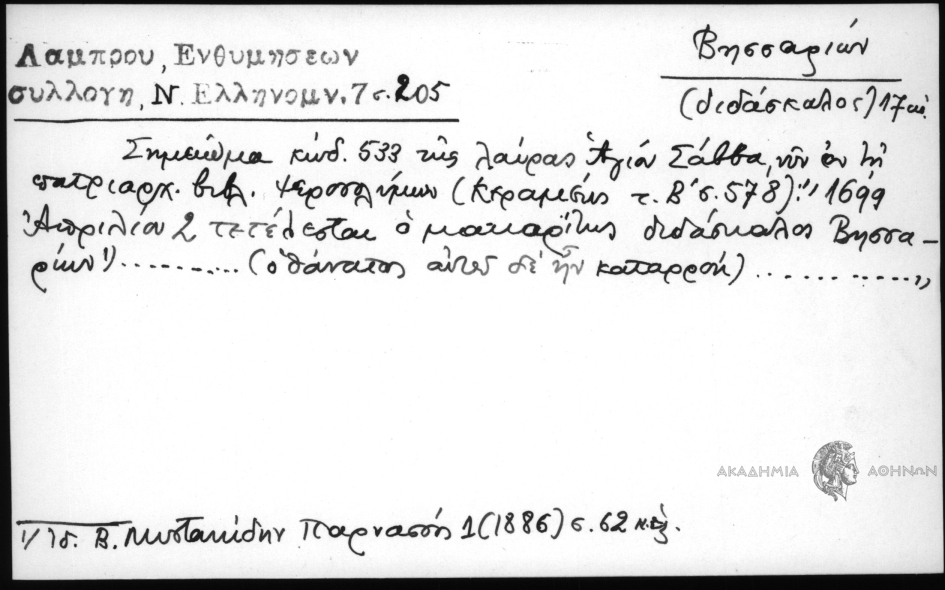 Λαμπρου, Ενθυμησεων
συλλογη, Ν. Ελληνομν. 7 σ. 205
Βησσαριών
(διδάσκαλος) 17 αι.
Σημείωμα κώδ. 533 τῆς λαύρας Ἁγίου Σάββα, νῦν ἐν τῇ
πατριαρχ. βιβλ. Ἱεροσολύμων (Κεραμεύς τ. Β' σ. 578): "1699
Ἀπριλίου 2 τετέλεσται ὁ μακαρίτης διδάσκαλος Βησσα-
ρίων 1) .......... (ὁ θάνατος αὐτοῦ δὲ ἦν καταρροή) ..........."
ΑΚΑΔΗΜΙΑ ΑΘΗΝΩΝ
1/ Ἰδ. Β. Μυστακίδην Παρνασσός 1 (1886) σ. 62 κ.ἑξ.